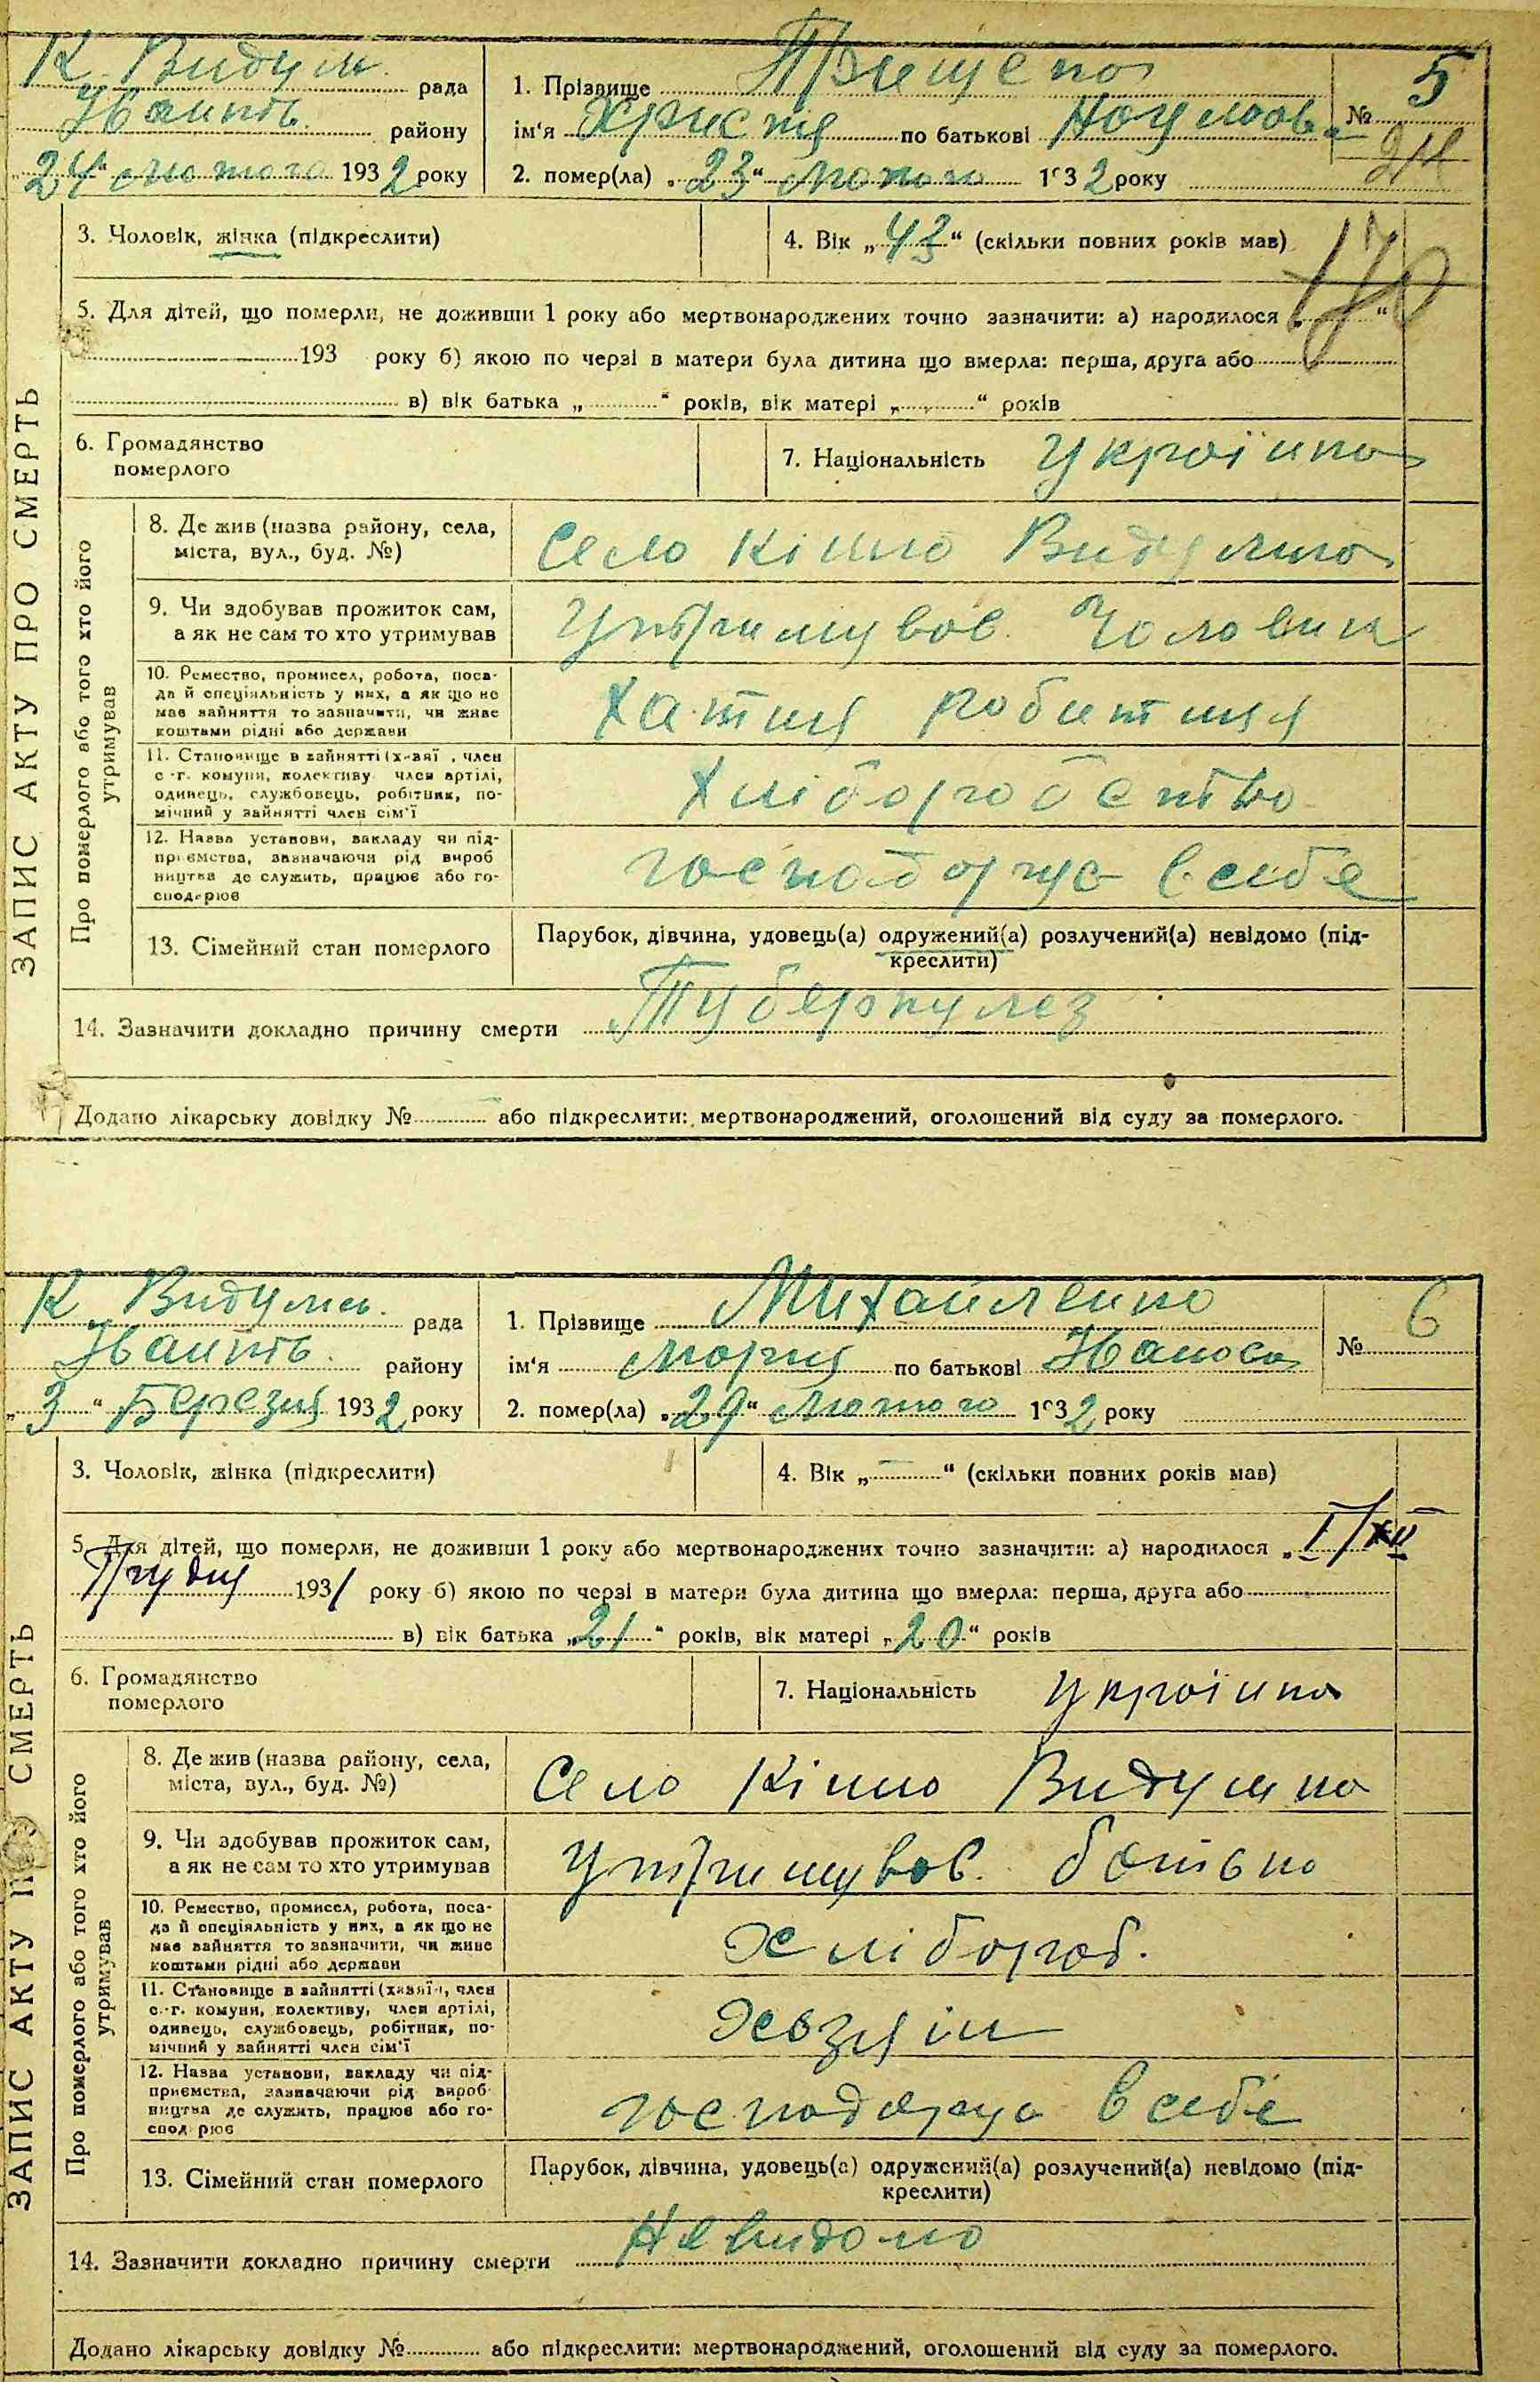 ЗАПИС АКТУ ПРО СМЕРТЬ
К. Видум. рада
району
24 " лютого 1932 року
1. Прізвище Прищепа
ім'я Христя по батькові Наумовa
2. помер(ла) „ 23 " лютого 1932 року
№ 5
24
3. Чоловік, жінка (підкреслити)
4. Вік „ 43 " (скільки повних років мав)
170
5. Для дітей, що померли, не доживши 1 року або мертвонароджених точно зазначити: а) народилося „ "
193 року б) якою по черзі в матери була дитина що вмерла: перша, друга або
в) вік батька „ " років, вік матері „ " років
6. Громадянство
померлого
7. Національність україnка
Про померлого або того хто його
утримував
8. Де жив (назва району, села,
міста, вул., буд. №)
Село Кінно Видумка
9. Чи здобував прожиток сам,
а як не сам то хто утримував
Утримував. Чоловик
10. Ремество, промисел, робота, поса-
да й спеціяльність у них, а як що не
має зайняття то зазначити, чи живе
коштами рідні або держави
Хатня робітниця
11. Становище в зайнятті (хазяї , член
с.-г. комуни, колективу член артілі,
одинець, службовець, робітник, по-
мічний у зайнятті член сім'ї
Хліборобство
12. Назва установи, закладу чи під-
приємства, зазначаючи рід вироб
ництва де служить, працює або го-
сподарює
господорує в себе
13. Сімейний стан померлого
Парубок, дівчина, удовець(а) одружений(а) розлучений(а) невідомо (під-
креслити)
14. Зазначити докладно причину смерти Туберкулез
Додано лікарську довідку № або підкреслити: мертвонароджений, оголошений від суду за померлого.
ЗАПИС АКТУ ПРО СМЕРТЬ
К. Видумк. рада
району
„ 3 " Березня 1932 року
1. Прізвище Михайленко
ім'я Марія по батькові
2. помер(ла) „ 29 " лютого 1932 року
№ 6
3. Чоловік, жінка (підкреслити)
4. Вік „ — " (скільки повних років мав)
5. Для дітей, що померли, не доживши 1 року або мертвонароджених точно зазначити: а) народилося „ I/XII
Грудня 1931 року б) якою по черзі в матери була дитина що вмерла: перша, друга або
в) вік батька „ 21 " років, вік матері „ 20 " років
6. Громадянство
померлого
7. Національність українка
Про померлого або того хто його
утримував
8. Де жив (назва району, села,
міста, вул., буд. №)
Село Кінно Видумка
9. Чи здобував прожиток сам,
а як не сам то хто утримував
Утримував. батько
10. Ремество, промисел, робота, поса-
да й спеціяльність у них, а як що не
має зайняття то зазначити, чи живе
коштами рідні або держави
Хлібороб.
11. Становище в зайнятті (хазяїн, член
с.-г. комуни, колективу, член артілі,
одинець, службовець, робітник, по-
мічний у зайнятті член сім'ї
Хазяїн
12. Назва установи, закладу чи під-
приємства, зазначаючи рід вироб-
ництва де служить, працює або го-
сподарює
господарує в себе
13. Сімейний стан померлого
Парубок, дівчина, удовець(а) одружений(а) розлучений(а) невідомо (під-
креслити)
14. Зазначити докладно причину смерти Невидомо
Додано лікарську довідку № або підкреслити: мертвонароджений, оголошений від суду за померлого.